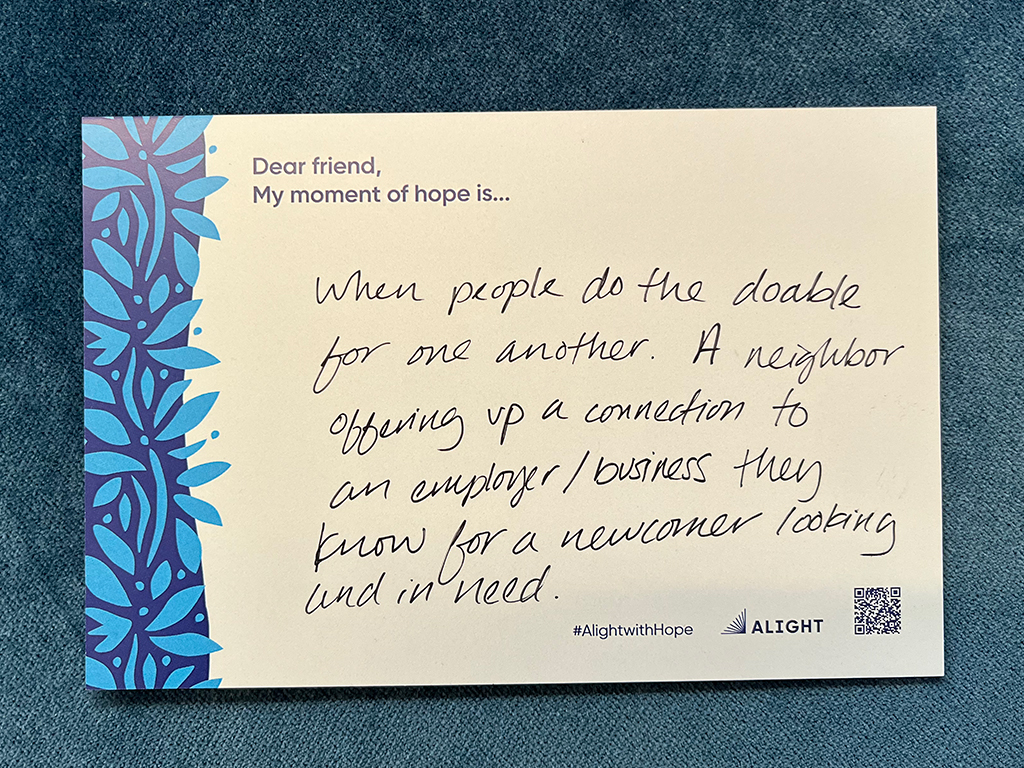 Dear friend,
My moment of hope is...
When people do the doable
for one another. A neighbor
offering up a connection to
an employer/business they
know for a newcomer looking
and in need.
#AlightwithHope
ALIGHT